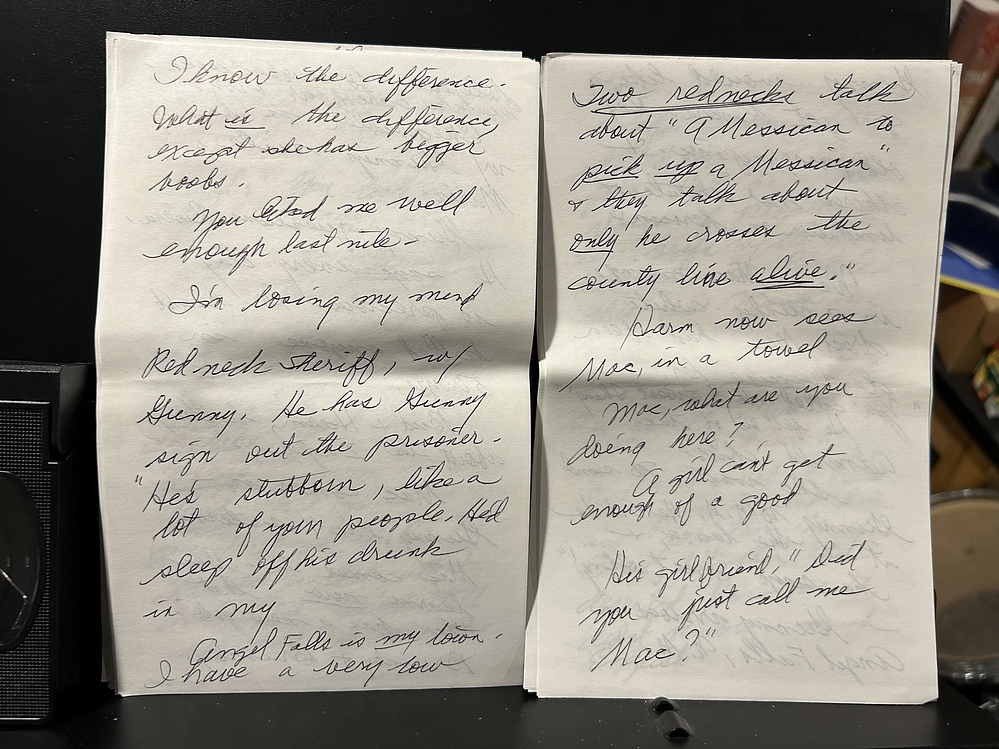 I know the difference.
What is the difference,
except she has bigger
boobs.
You liked me well
enough last nite -
I'm losing my mind
Redneck Sheriff, w/
Gunny. He has Gunny
sign out the prisoner.
"He's stubborn, like a
lot of your people. He'd
sleep off his drunk
in my
Angel Falls is my town.
I have a very low
Two rednecks talk
about "A Messican to
pick up a Messican"
& they talk about
only he crosses the
county line alive."
Harm now sees
Mac, in a towel
Mac, what are you
doing here?
A girl can't get
enough of a good
His girlfriend, "Did
you just call me
Mac?"